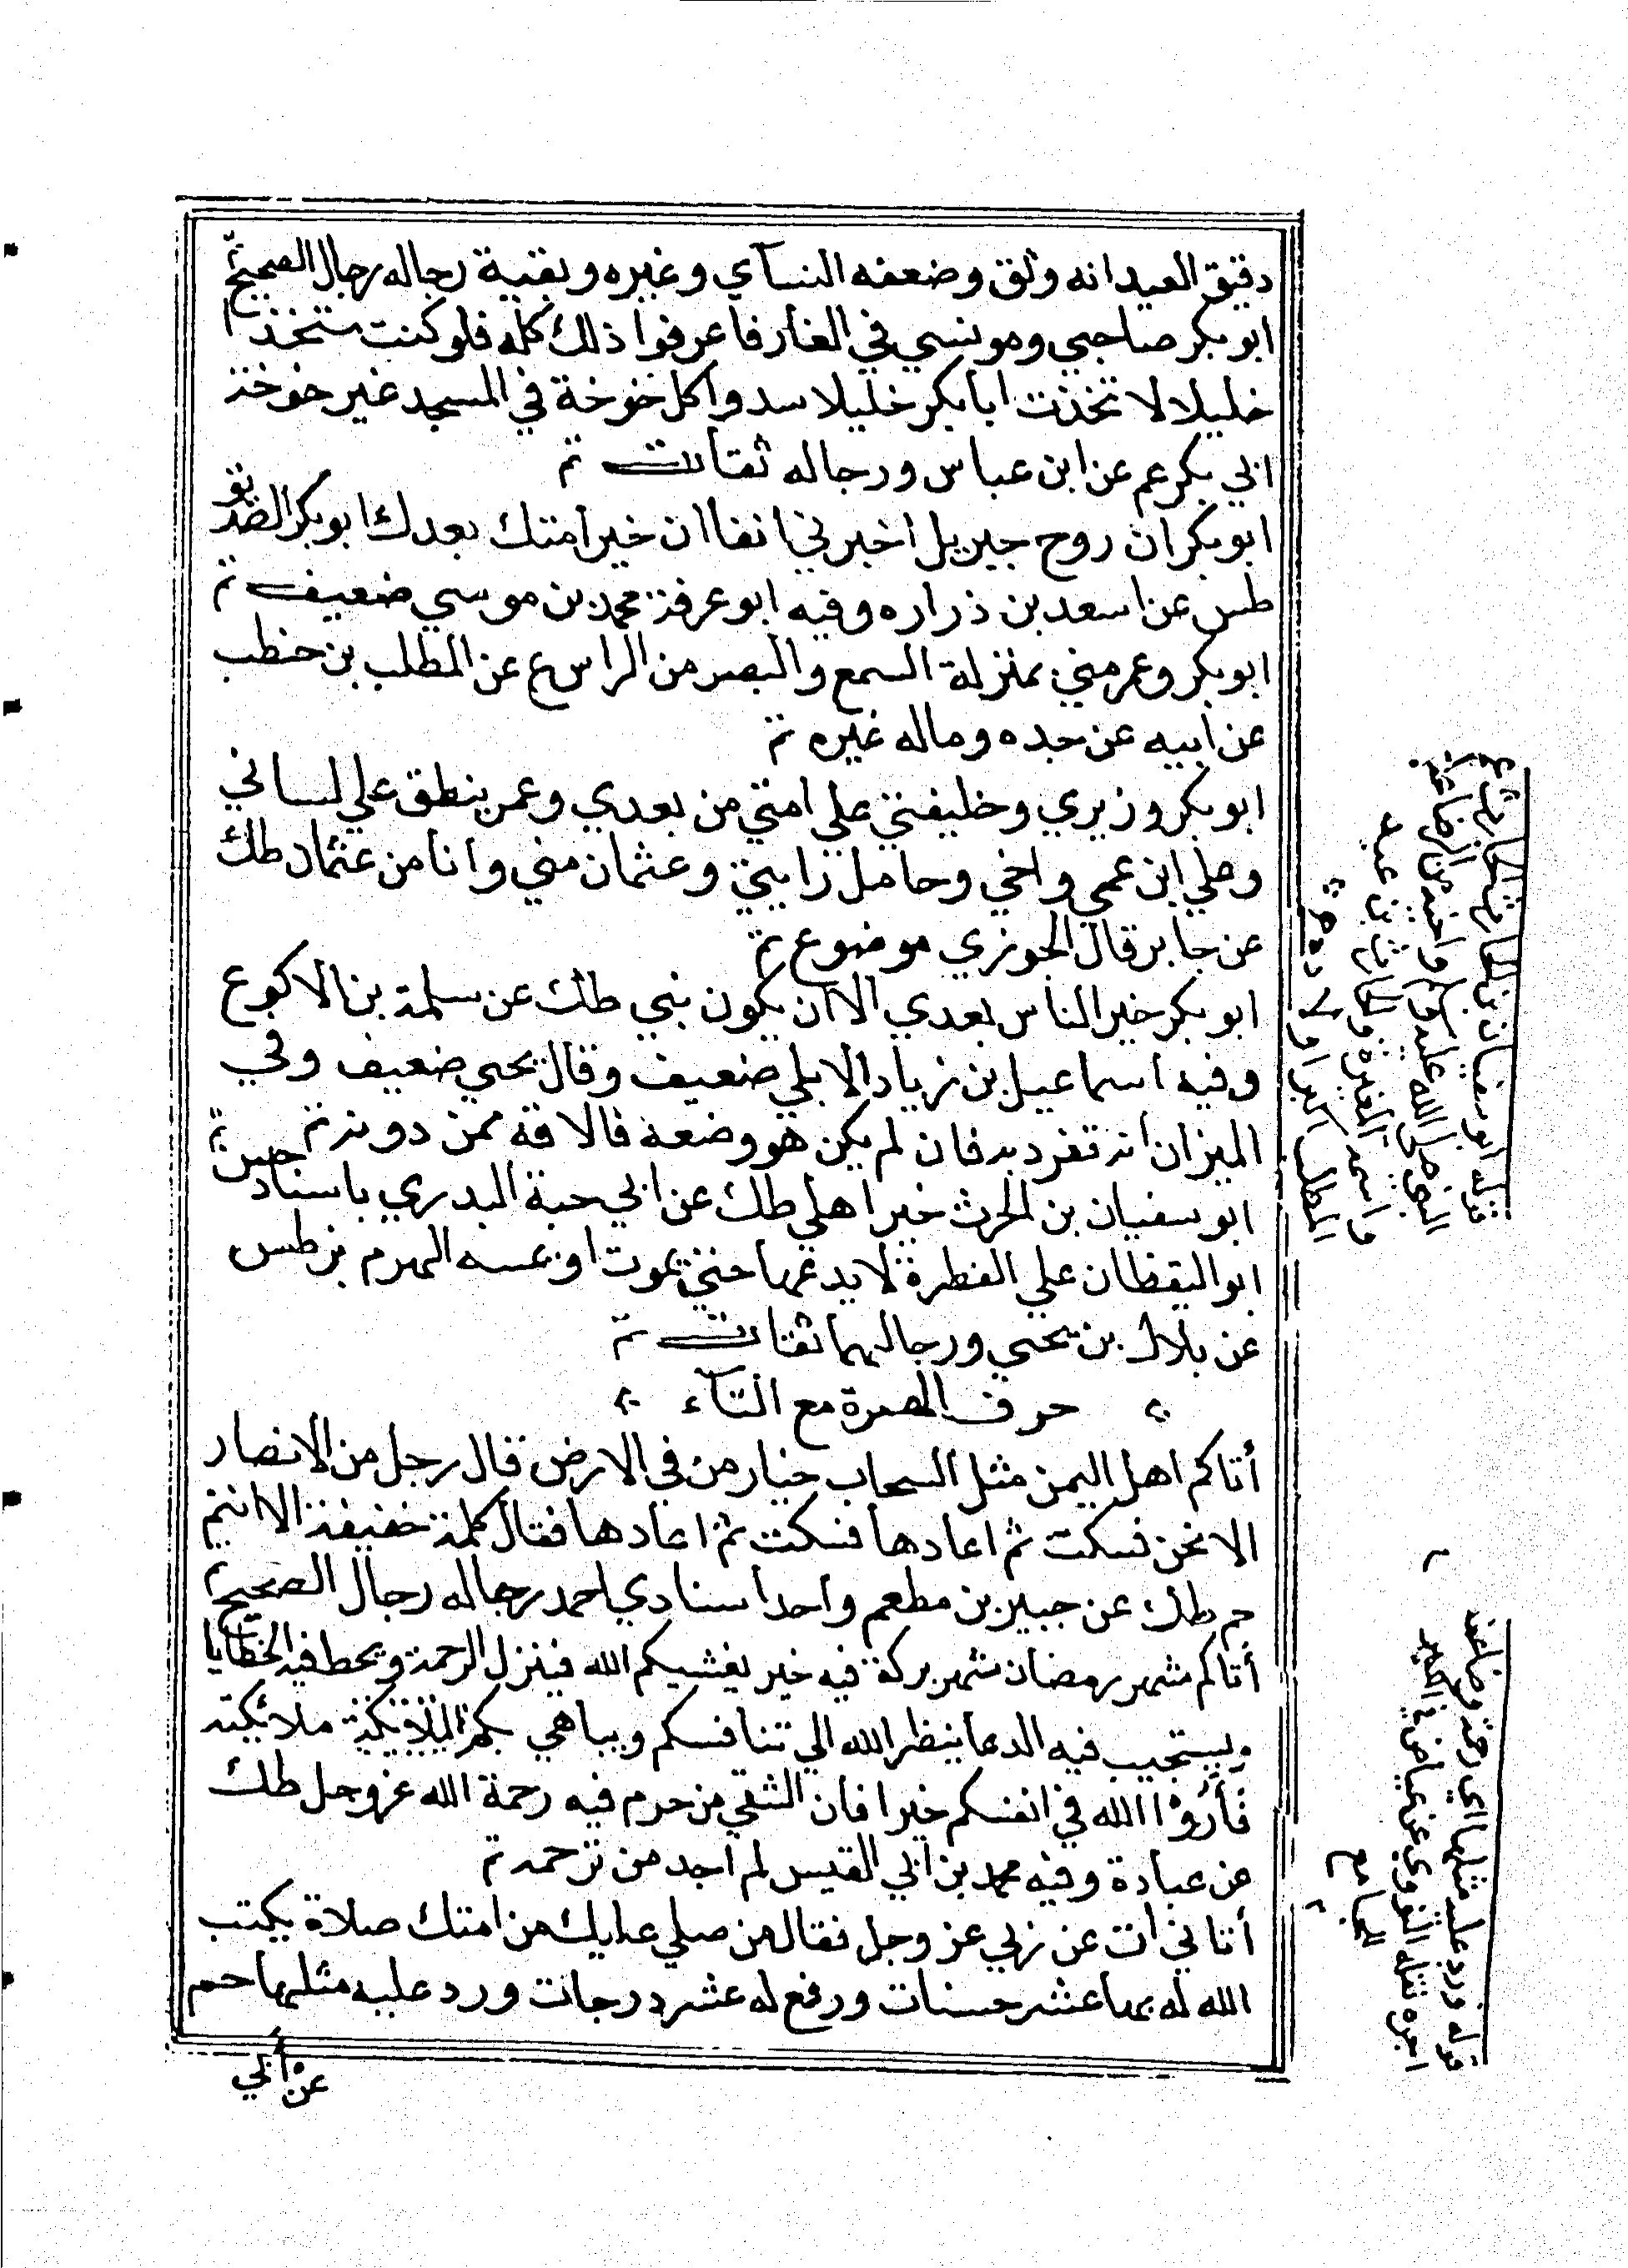 دقيق العيد انه وثق وضعفه النسآي وغيره وبقية رجاله رجال الصحيح تم
ابو بكر صاحبي ومونسي في الغار فاعرفوا ذلك كله فلو كنت متخذا
خليلا لاتخذت ابا بكر خليلا سدوا كل خوخة في المسجد غير خوخة
ابي بكر عم عن ابن عباس ورجاله ثقات تم
ابو بكر ان روح جبريل اخبرني انفا ان خير امتك بعدك ابو بكر الصديق
طس عن اسعد بن زراره وفيه ابو عرفة محمد بن موسي ضعيف تم
ابو بكر وعمر مني بمنزلة السمع والبصر من الراس ع عن المطلب بن حنطب
عن ابيه عن جده وماله غيره تم
ابو بكر وزيري وخليفتي علي امتي من بعدي وعمر ينطق علي لساني
وعلي ابن عمي واخي وحامل رايتي وعثمان مني وانا من عثمان طك
عن جابر قال الجوزي موضوع تم
ابو بكر خير الناس بعدي الا ان يكون نبي طك عن سلمة بن الاكوع
وفيه اسماعيل بن زياد الابلي ضعيف وقال يحيي ضعيف وفي
الميزان انه تفرد به فان لم يكن هو وضعه فالافة ممن دونه تم
ابو سفيان بن الحرث خير اهلي طك عن ابي حبة البدري باسناد حسن تم
ابو اليقظان علي الفطرة لا يدعها حتي يموت او يمسه الهرم بز طس
عن بلال بن يحيي ورجالهما ثقات تم
حرف الهمزة مع التآء
أتاكم اهل اليمن مثل السحاب خيار من في الارض قال رجل من الانصار
الا نحن فسكت ثم اعادها فسكت ثم اعادها فقال كلمة خفيفة الا انتم
حم طك عن جبير بن مطعم واحد اسنادي احمد رجاله رجال الصحيح تم
أتاكم شهر رمضان شهر بركة فيه خير يغشيكم الله فينزل الرحمة ويحط فيه الخطايا
ويستجيب فيه الدعا ينظر الله الي تنافسكم ويباهي بكم الملايكة ملائكته
فأروا الله في انفسكم خيرا فان الشقي من حرم فيه رحمة الله عز وجل طك
عن عبادة وفيه محمد بن ابي القيس لم اجد من ترجمه تم
أتاني آت عن ربي عز وجل فقال من صلي عليك من امتك صلاة يكتب
الله له بها عشر حسنات ورفع له عشر درجات ورد عليه مثلها حم
عن أبي
قوله ابو سفيان بن الحارث
النبي صلى الله عليه وسلم واخيه من الرضاعة
واسمه المغيرة والحارث بن عبد
المطلب اكبر اولاده
قوله ورد عليه مثلها اي رحمة وضاعف
اجره نقله النووي عن عياض في الكبير
الجامع